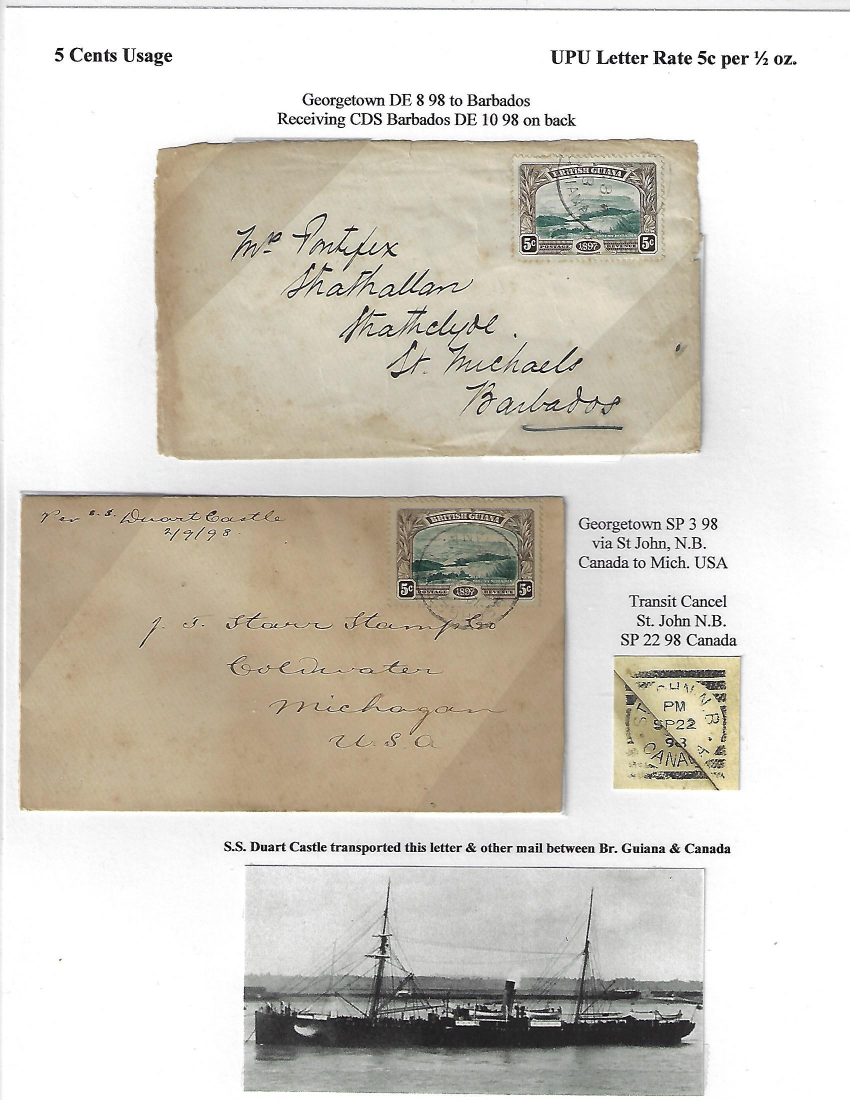 5 Cents Usage
UPU Letter Rate 5c per ½ oz.
Georgetown DE 8 98 to Barbados
Receiving CDS Barbados DE 10 98 on back
BRITISH GUIANA
5c POSTAGE 1897 REVENUE 5c
Mrs Pontifex
Strathallan
Strathclyde.
St. Michaels
Barbados
Per S.S. Duart Castle
2/9/98.
BRITISH GUIANA
5c POSTAGE 1897 REVENUE 5c
J. T. Starr Stamp Co
Coldwater
Michagan
U.S.A
Georgetown SP 3 98
via St John, N.B.
Canada to Mich. USA
Transit Cancel
St. John N.B.
SP 22 98 Canada
PM
SP 22
98
CANADA
S.S. Duart Castle transported this letter & other mail between Br. Guiana & Canada